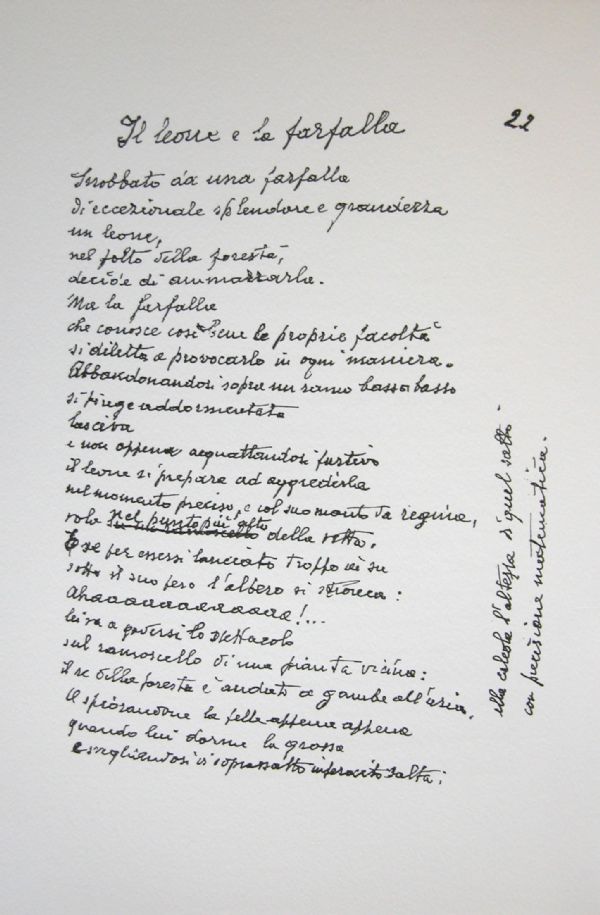 Il leone e la farfalla
22
Snobbato da una farfalla
di eccezionale splendore e grandezza
un leone,
nel folto della foresta,
decide di ammazzarla.
Ma la farfalla
che conosce così bene le proprie facoltà
si diletta a provocarlo in ogni maniera.
Abbandonandosi sopra un ramo basso basso
si finge addormentata
lasciva
e non appena acquattandosi furtivo
il leone si prepara ad aggredirla
nel momento preciso, e col suo manto da regina,
nel punto più alto
vola su un ramoscello della vetta.
E se per essersi lanciato troppo in su
sotto il suo peso l'albero si stronca:
Ahaaaaaaaaaaaa!...
lei va a godersi lo spettacolo
sul ramoscello di una pianta vicina:
il re della foresta è andato a gambe all'aria.
O sfiorandone la pelle appena appena
quando lui dorme la grossa
e svegliandosi di soprassalto inferocito salta:
ella calcola l'altezza di quel salto
con precisione matematica.